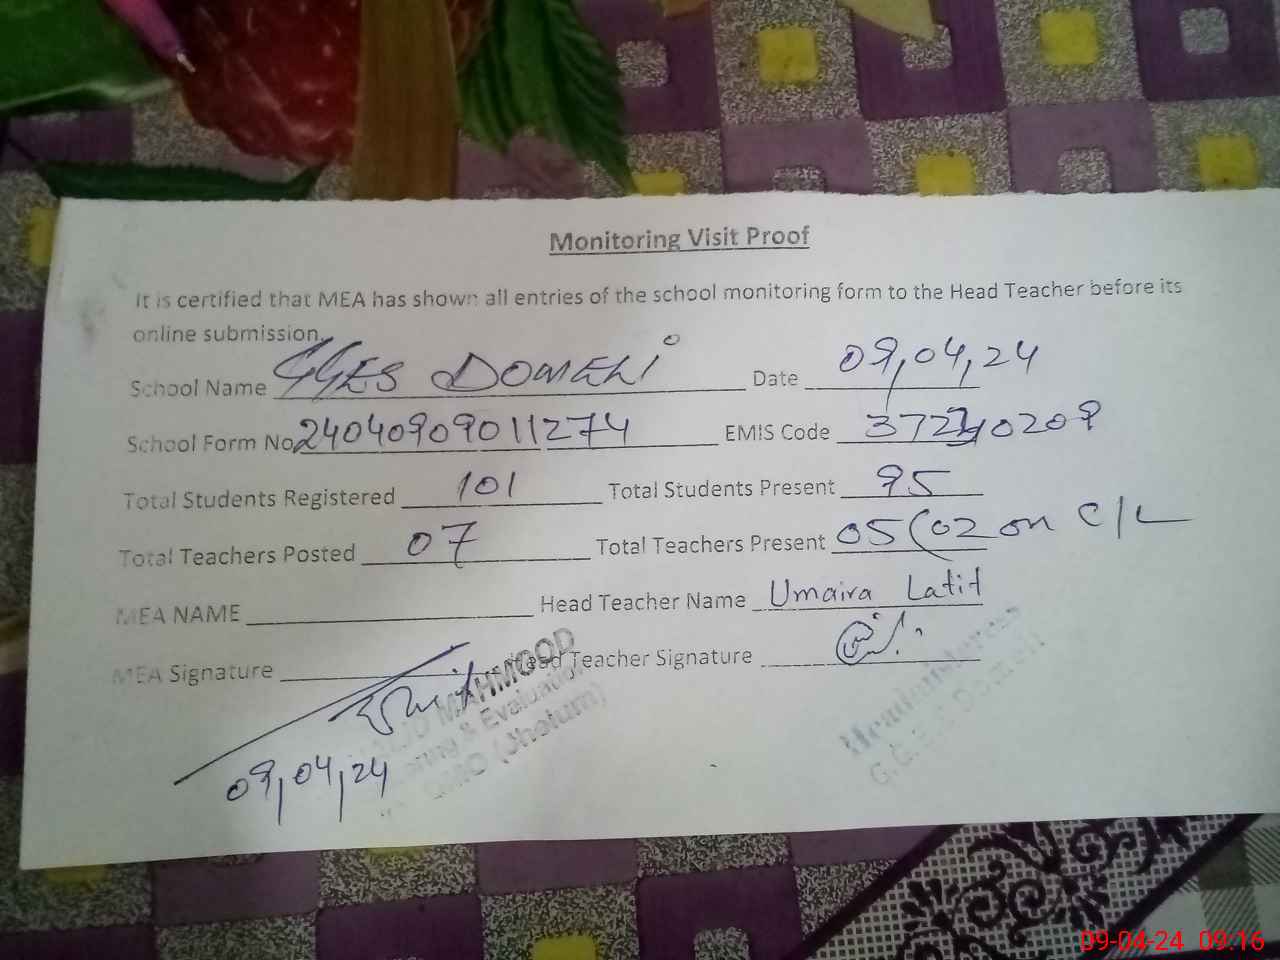 Monitoring Visit Proof
It is certified that MEA has shown all entries of the school monitoring form to the Head Teacher before its
online submission.
School Name GGES DOMELI Date 09,04,24
School Form No. 24040909011274 EMIS Code 
Total Students Registered 101 Total Students Present 95
Total Teachers Posted 07 Total Teachers Present 05 (02 on C/L
MEA NAME Head Teacher Name Umaira Latif
MEA Signature Head Teacher Signature
MAHMOOD
& Evaluation
(Jhelum)
09,04,24
Headmistress
G.G.E.S Domeli
09-04-24 09:16